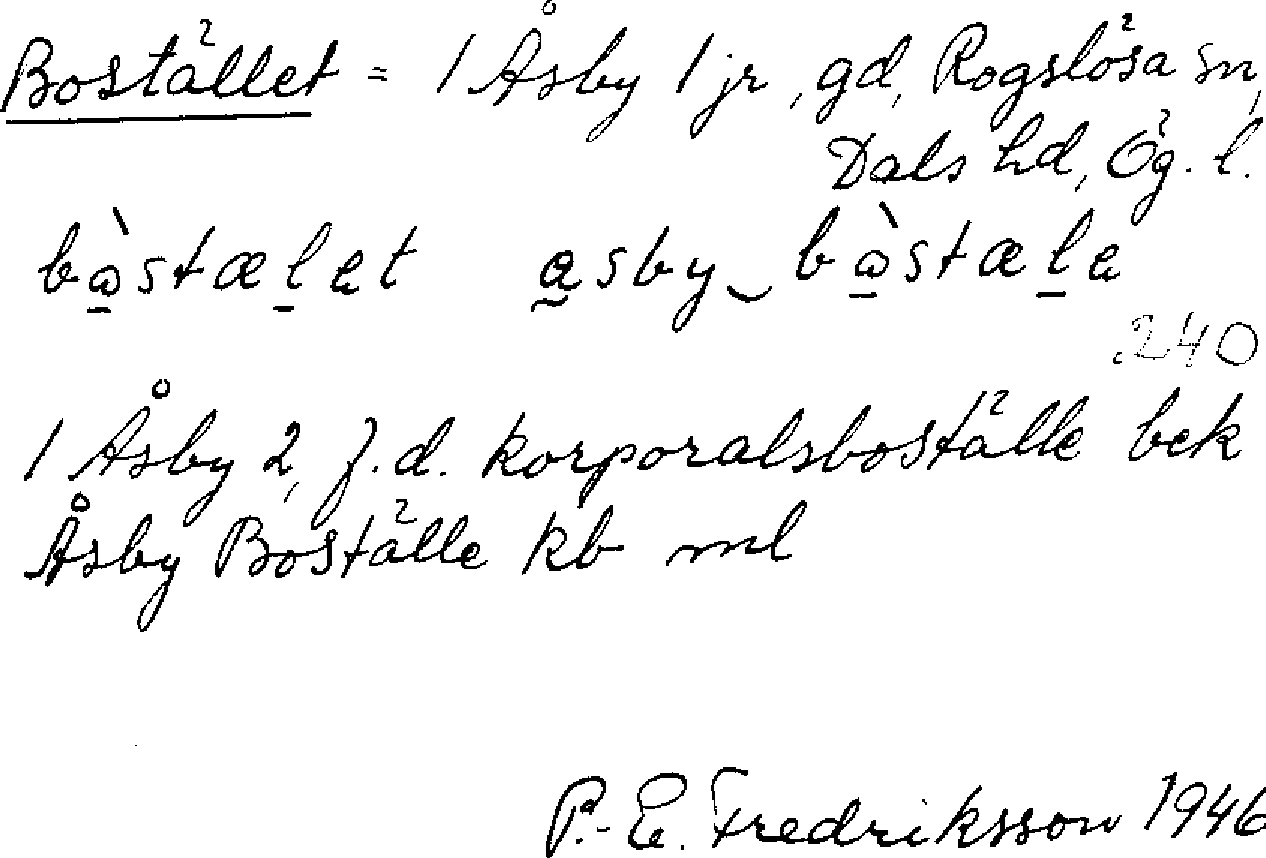 Bostället = 1 Åsby 1 jr, gd, Rogslösa sn,
Dals hd, Ög. l.
bòstælet asby‿bòstæle
240
1 Åsby 2, f.d. korporalsboställe bek
Åsby Boställe kb ml
P.-E. Fredriksson 1946